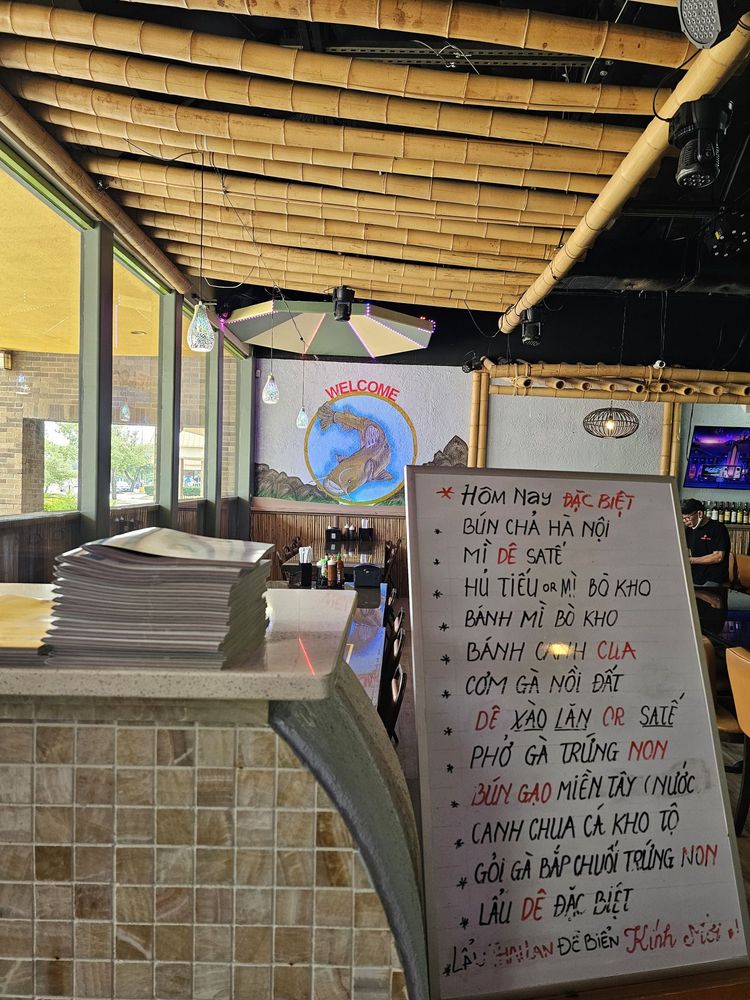 WELCOME
* Hôm Nay ĐẶC BIỆT
* BÚN CHẢ HÀ NỘI
* MÌ DÊ SATẾ
* HỦ TIẾU OR MÌ BÒ KHO
* BÁNH MÌ BÒ KHO
* BÁNH CANH CUA
* CƠM GÀ NỒI ĐẤT
DÊ XÀO LĂN OR SATẾ
* PHỞ GÀ TRỨNG NON
* BÚN GẠO MIỀN TÂY (NƯỚC
* CANH CHUA CÁ KHO TỘ
* GỎI GÀ BẮP CHUỐI TRỨNG NON
* LẨU DÊ ĐẶC BIỆT
* LẨU THAILAN ĐỒ BIỂN Kính Mời !